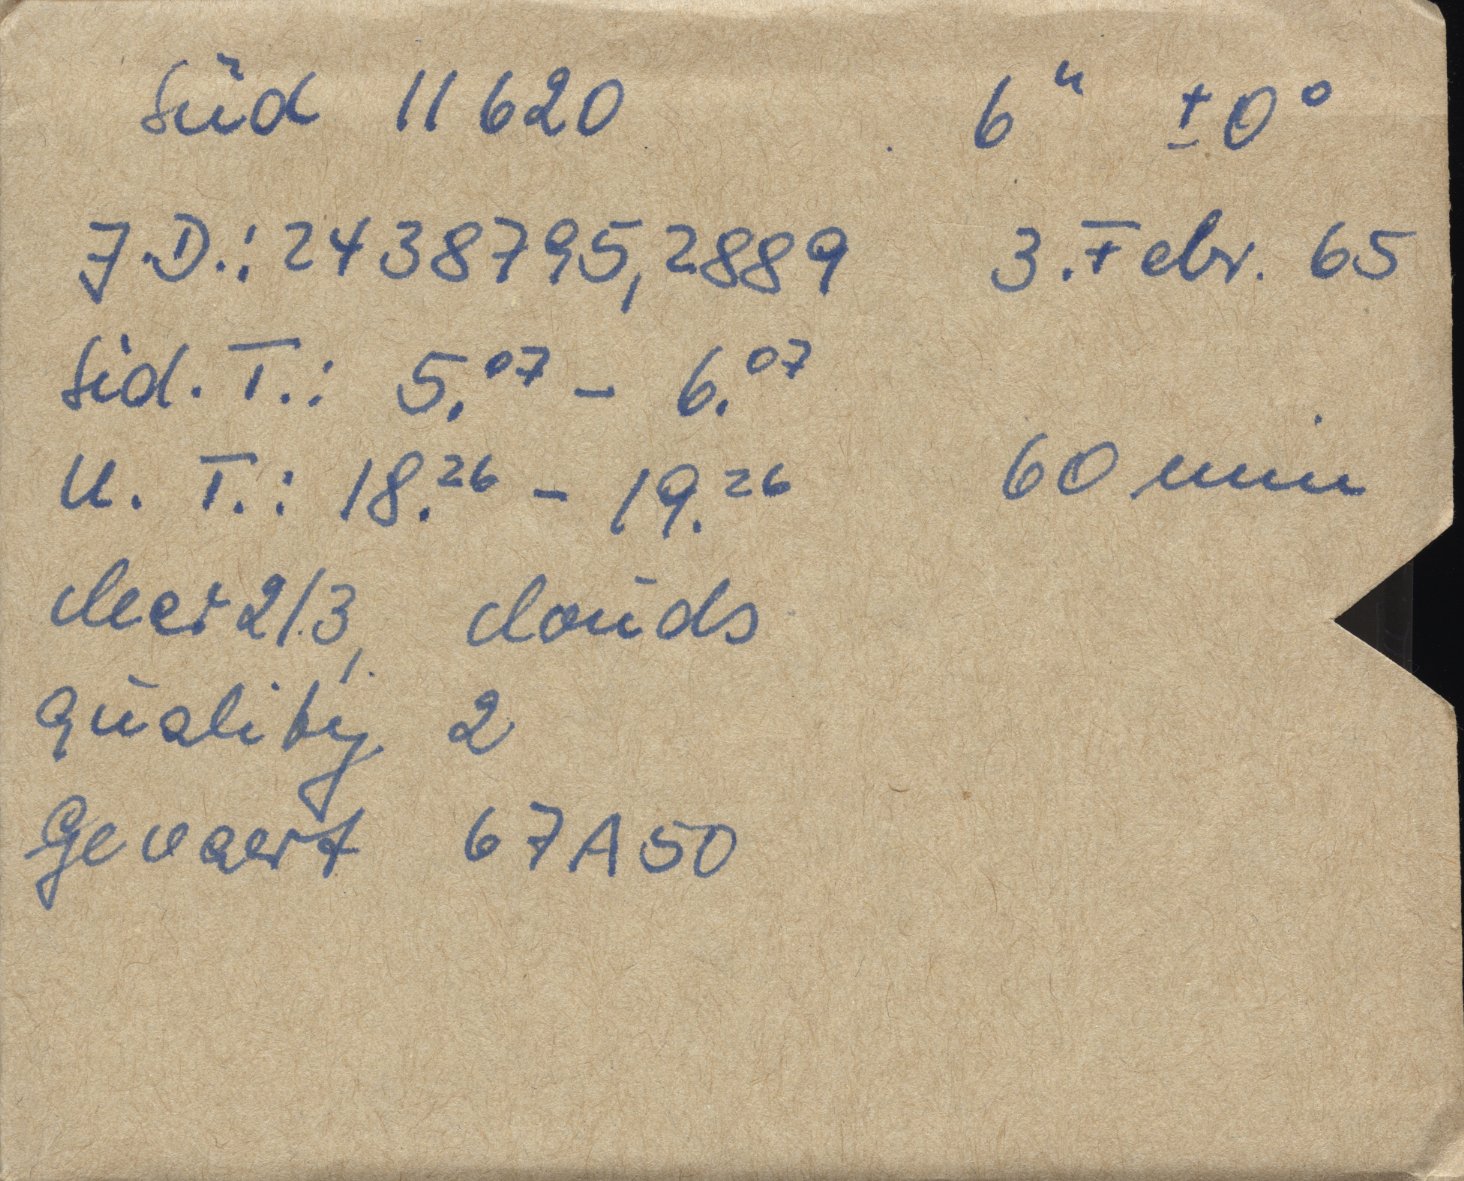 Süd 11620 6ʰ ±0°
J.D.: 2438795,2889 3. Febr. 65
Sid. T.: 5.⁰⁷ – 6.⁰⁷
U. T.: 18.²⁶ – 19.²⁶ 60 min
clear 2/3, clouds
quality 2
Gevaert 67A50